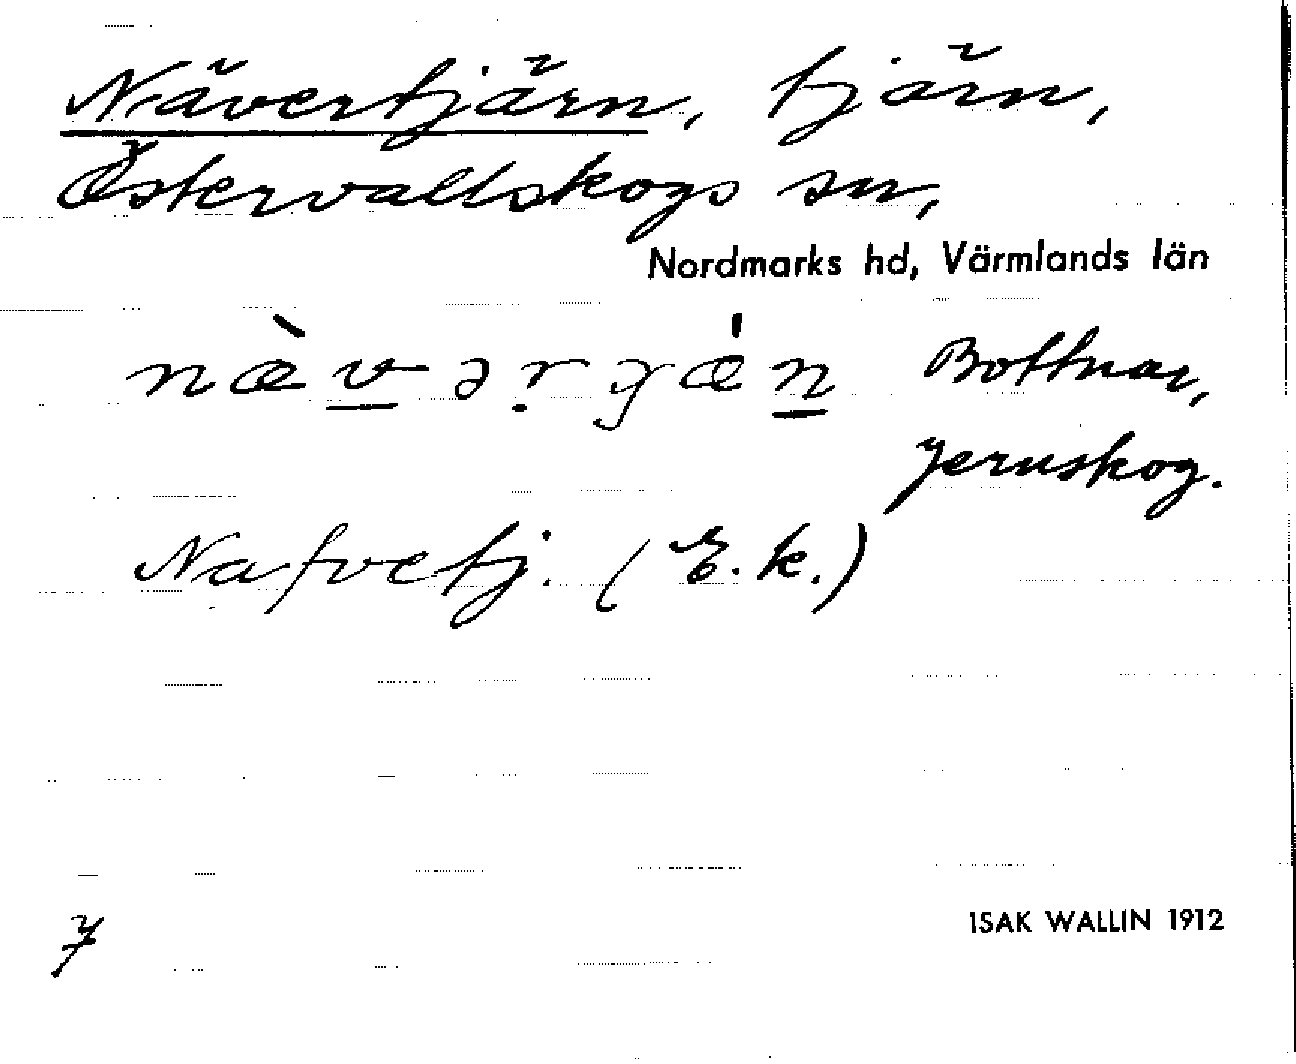 Nävertjärn, tjärn,
Östervallskogs sn,
Nordmarks hd, Värmlands län
næ̀vərɟǽn Bottnar,
Jernskog.
Nafvetj. (E.k.)
7
ISAK WALLIN 1912